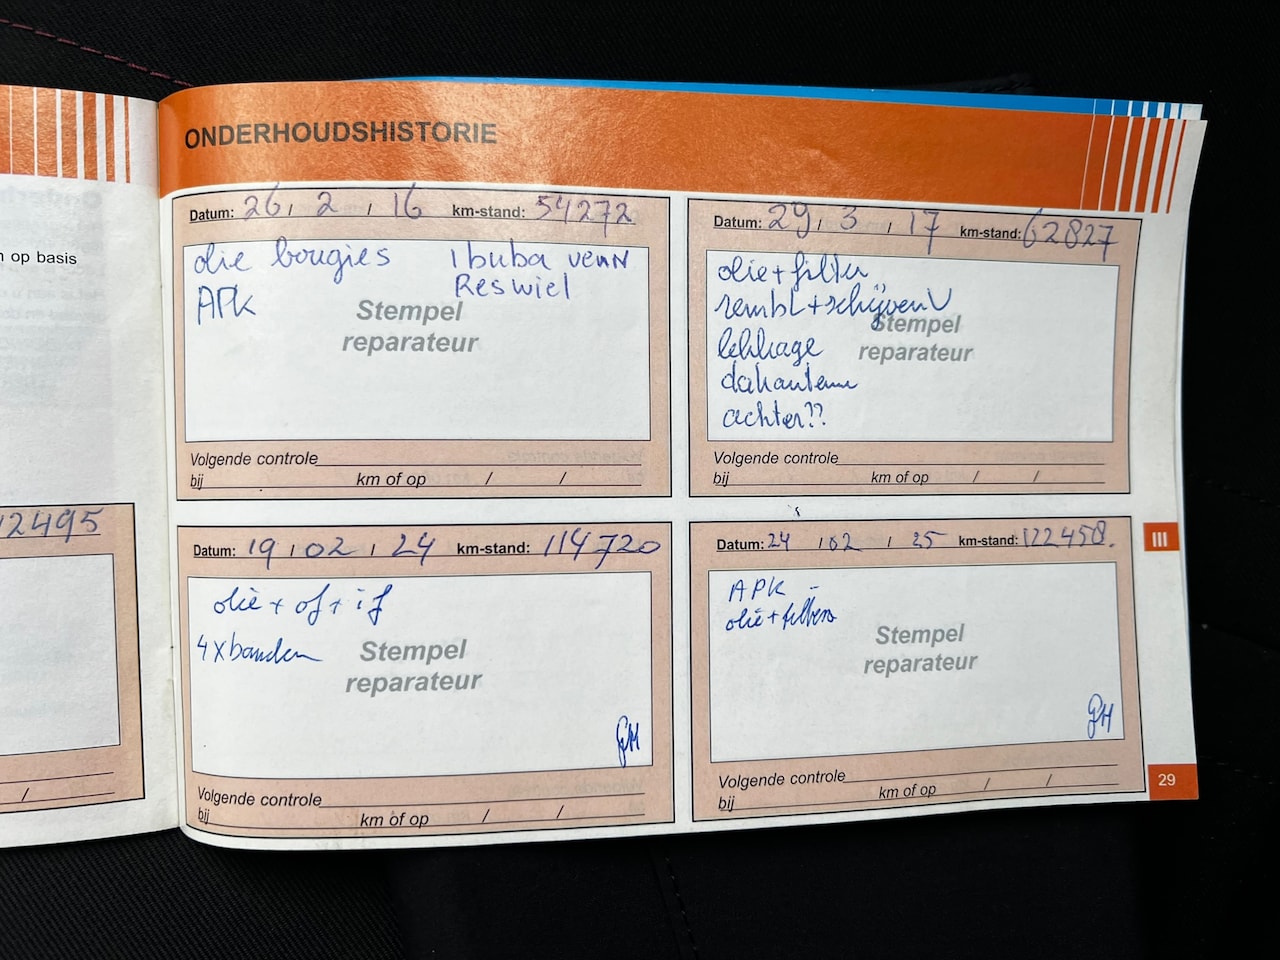 ONDERHOUDSHISTORIE
n op basis
12495
/
Datum: 26 / 2 / 16 km-stand: 54272
olie bougies
APK
1 buba venN
Reswiel
Stempel
reparateur
Volgende controle
bij km of op / /
Datum: 29 / 3 / 17 km-stand: 62827
olie + filter
rembl + schijven V
lekkage
dakantenne
achter??
Stempel
reparateur
Volgende controle
bij km of op / /
Datum: 19 / 02 / 24 km-stand: 114720
olie + of + if
4x banden
Stempel
reparateur
GH
Volgende controle
bij km of op / /
Datum: 24 / 02 / 25 km-stand: 122450.
APK -
olie + filters
Stempel
reparateur
GH
Volgende controle
bij km of op / /
III
29